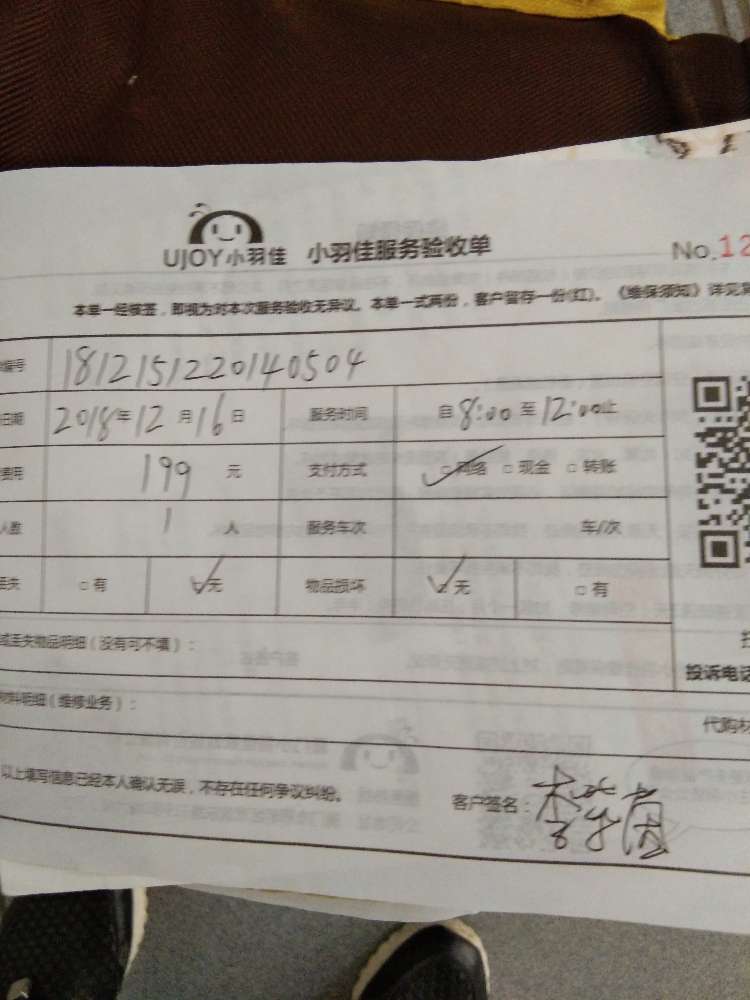 UJOY小羽佳 小羽佳服务验收单 No.12
本单一经被签，即视为对本次服务验收无异议。本单一式两份，客户留存一份(红)。《维保须知》详见背
编号 1812151220140504
日期 2018年12月16日 服务时间 自8:00至12:00止
费用 199元 支付方式 网络 现金 转账
人数 1人 服务车次 车/次
丢失 有 无 物品损坏 无 有
或丢失物品明细（没有可不填）：
投诉电话
材料明细（维修业务）：
代购材
以上填写信息已经本人确认无误，不存在任何争议纠纷。
客户签名：